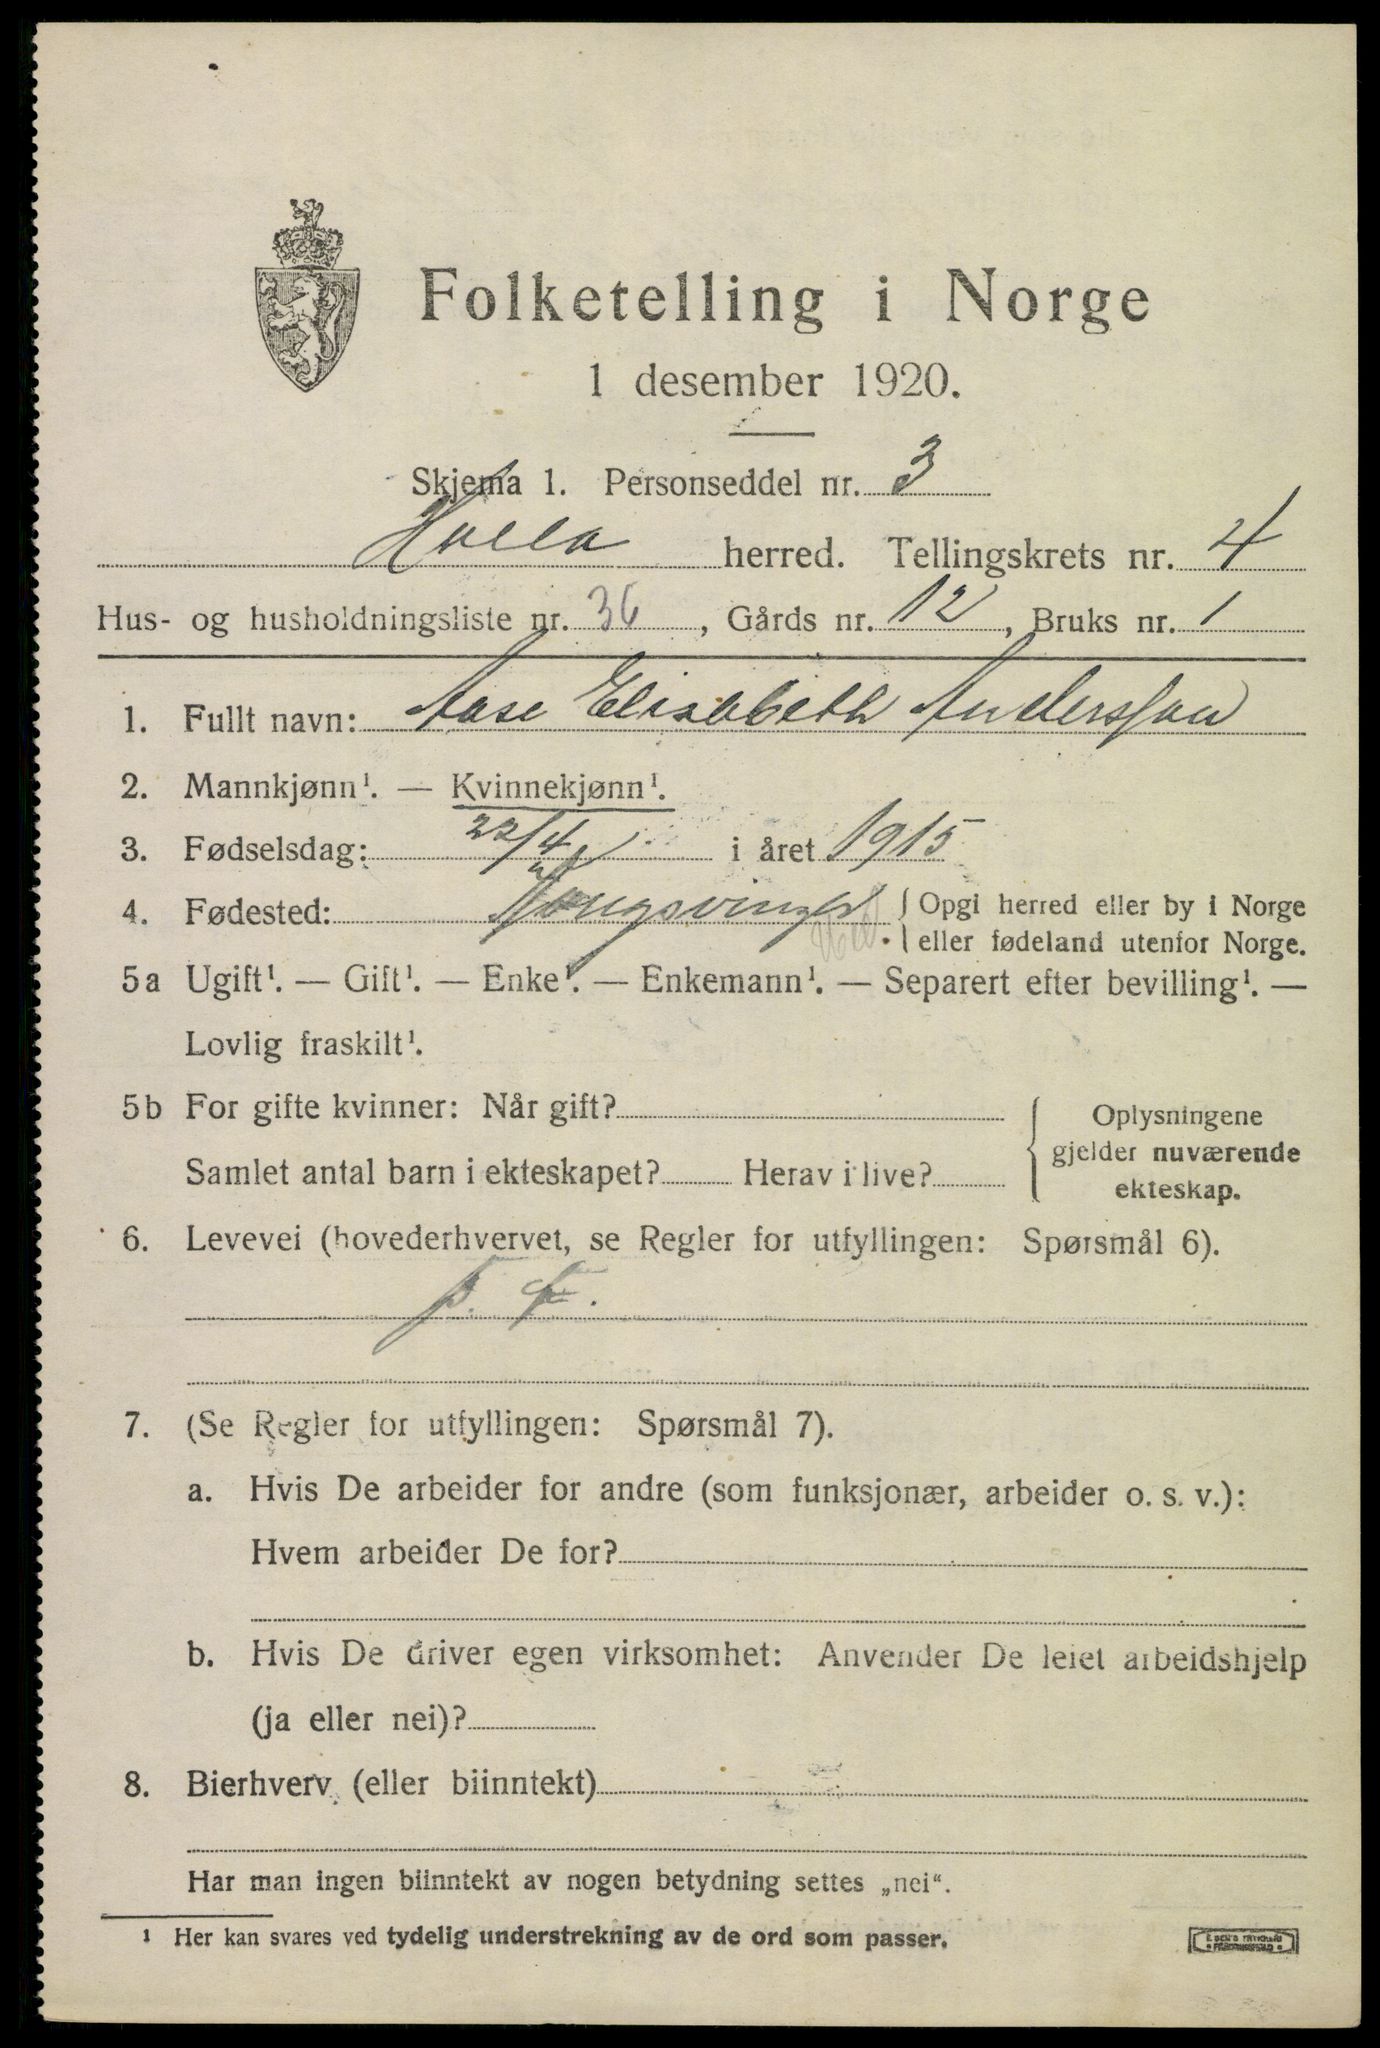 Folketelling i Norge
1 desember 1920.
Skjema 1. Personseddel nr. 3
Holla herred. Tellingskrets nr. 4
Hus- og husholdningsliste nr. 36, Gårds nr. 12, Bruks nr. 1
1. Fullt navn: Aase Elisabeth Anderssen
2. Mannkjønn¹. — Kvinnekjønn¹.
3. Fødselsdag: 22/4 i året 1915
4. Fødested: Kongsvinger { Opgi herred eller by i Norge
eller fødeland utenfor Norge.
5a Ugift¹. — Gift¹. — Enke¹. — Enkemann¹. — Separert efter bevilling¹. —
Lovlig fraskilt¹.
5b For gifte kvinner: Når gift?
Samlet antal barn i ekteskapet? Herav i live?
Oplysningene
gjelder nuværende
ekteskap.
6. Levevei (hovederhvervet, se Regler for utfyllingen: Spørsmål 6).
F. F.
7. (Se Regler for utfyllingen: Spørsmål 7).
a. Hvis De arbeider for andre (som funksjonær, arbeider o. s. v.):
Hvem arbeider De for?
b. Hvis De driver egen virksomhet: Anvender De leiet arbeidshjelp
(ja eller nei)?
8. Bierhverv (eller biinntekt)
Har man ingen biinntekt av nogen betydning settes „nei“.
¹ Her kan svares ved tydelig understrekning av de ord som passer.